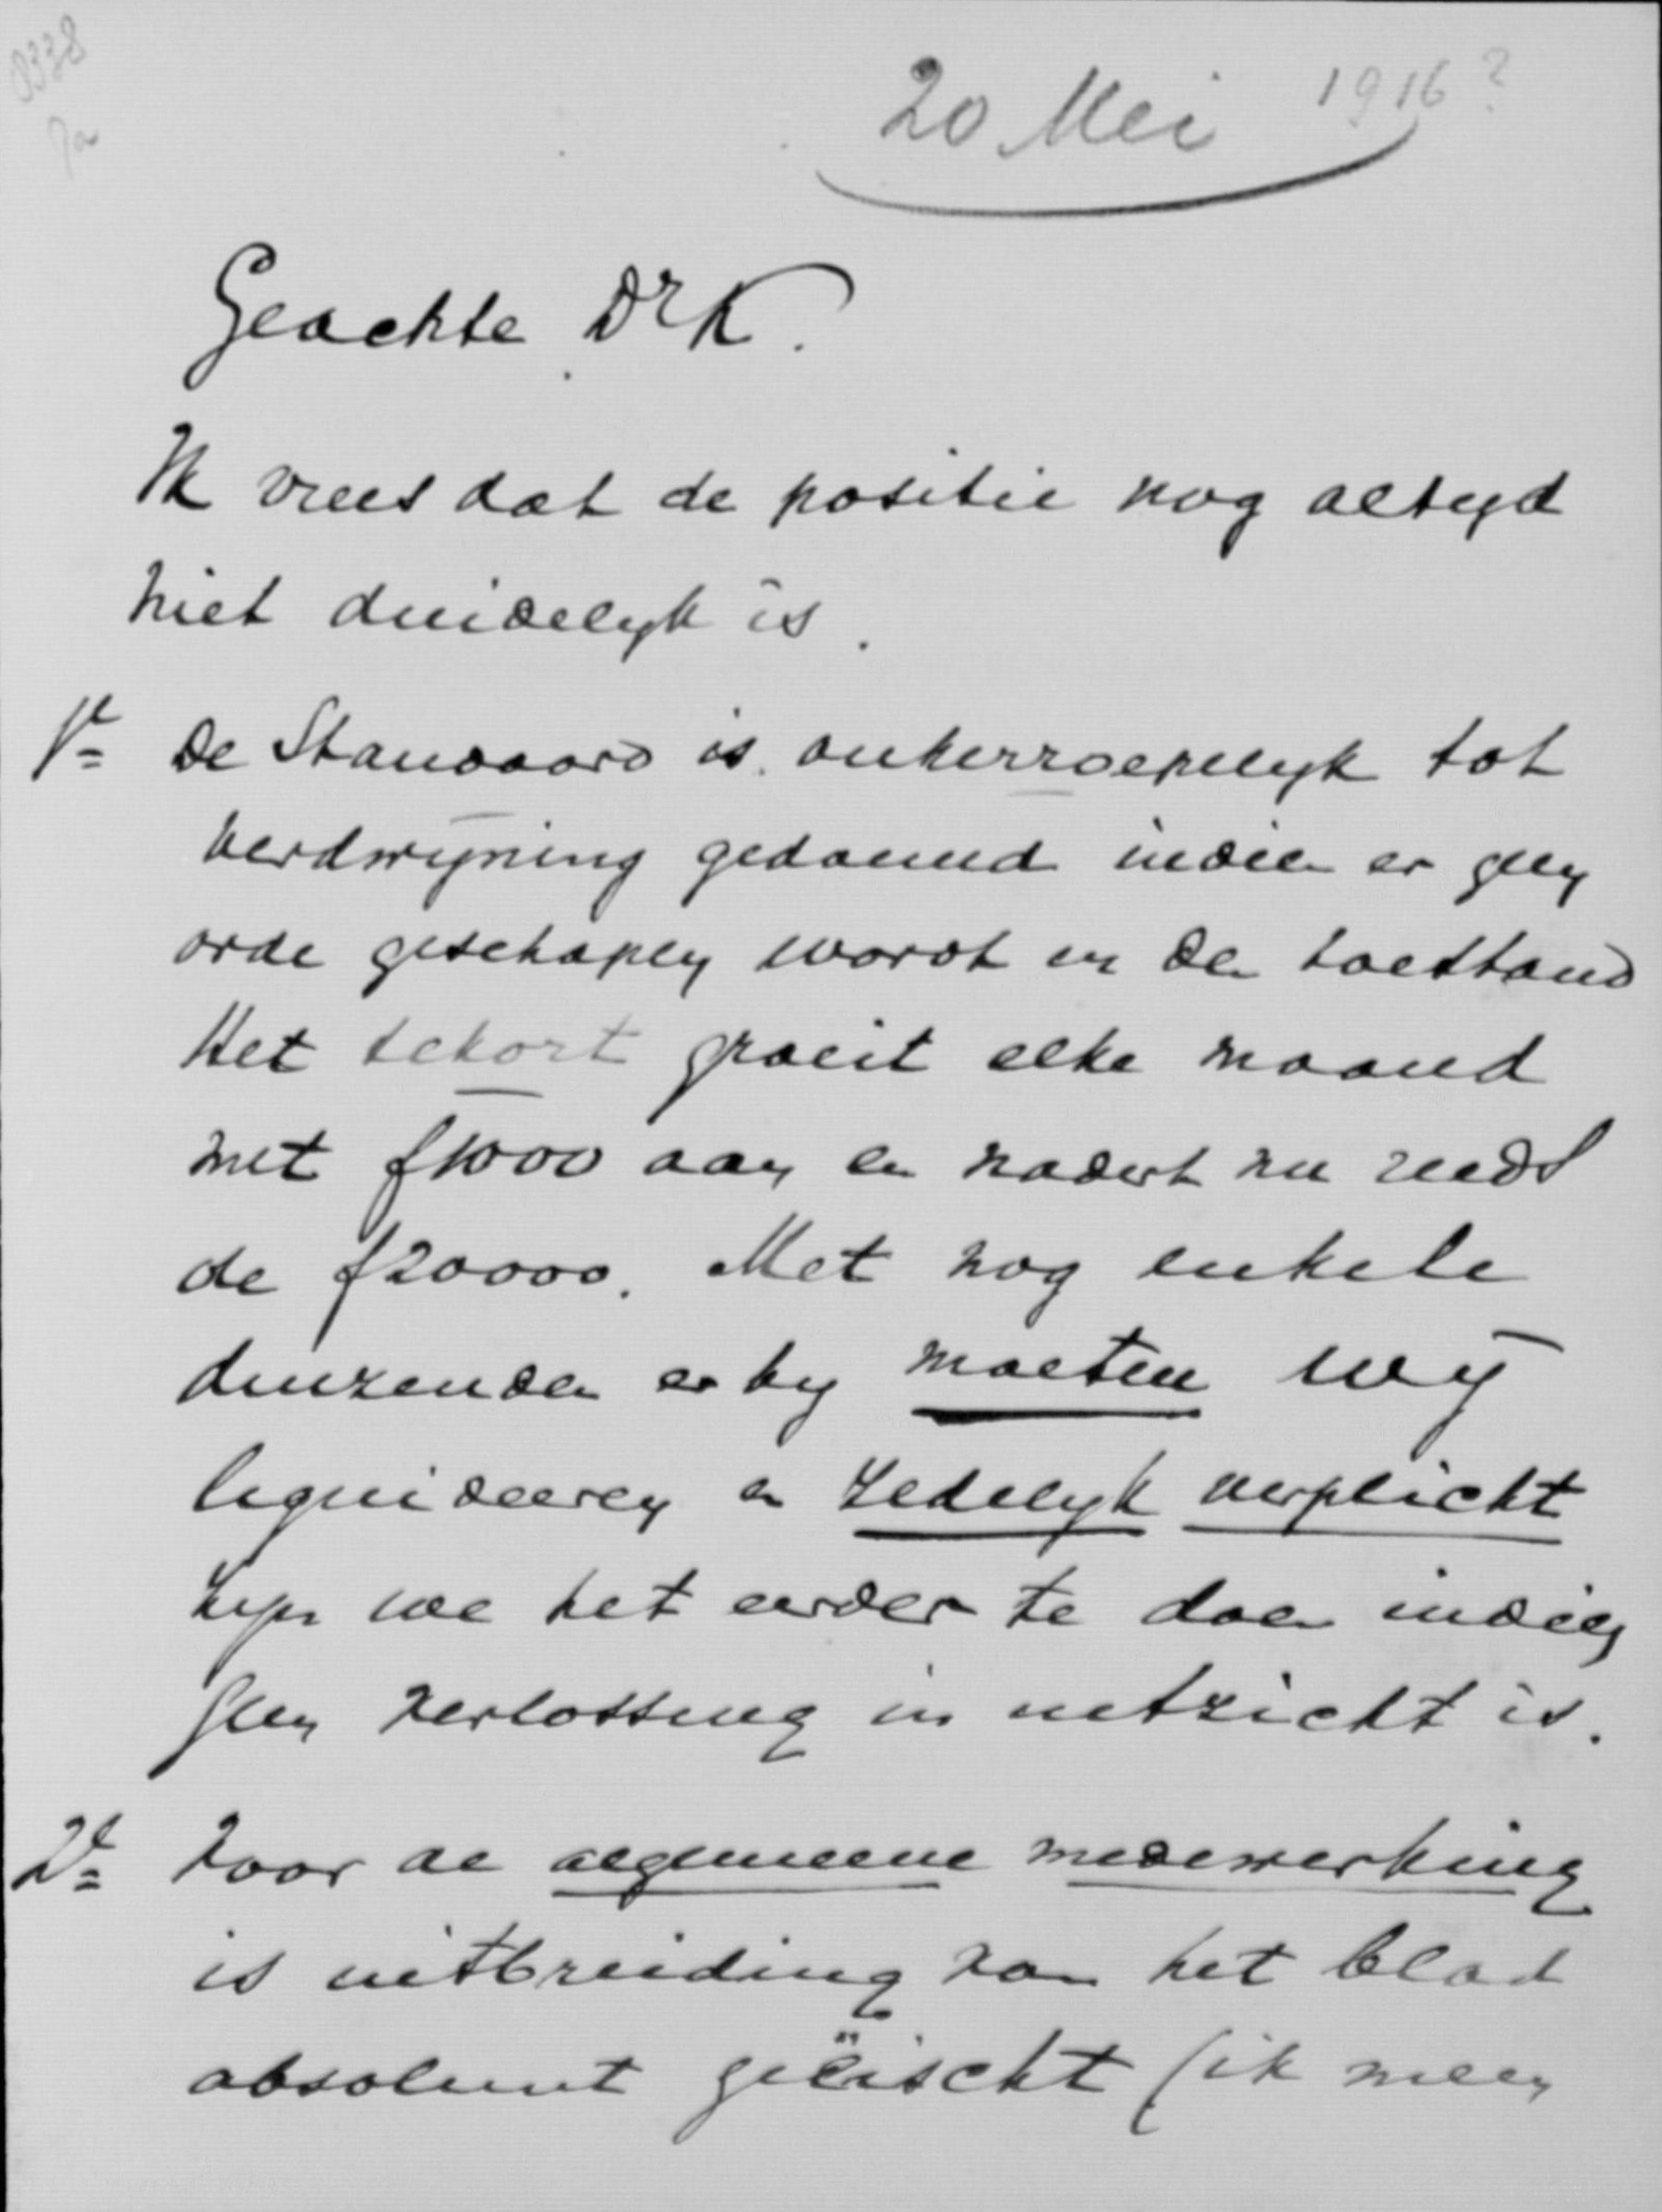 0338
20 Mei 1916?
Geachte Dr K.
Ik vrees dat de positie nog altyd
niet duidelyk is.
1e De Standaard is onherroepelyk tot
verdwijning gedoemd indien er geen
orde geschapen wordt in den toestand
Het tekort groeit elke maand
met f1000 aan en nadert nu reeds
de f20000. Met nog enkele
duizenden er by moeten wij
liquideeren en zedelyk verplicht
zyn we het eerder te doen indien
geen verlossing in uitzicht is.
2e Voor de algemeene medewerking
is uitbreiding van het blad
absoluut geëischt (ik meen